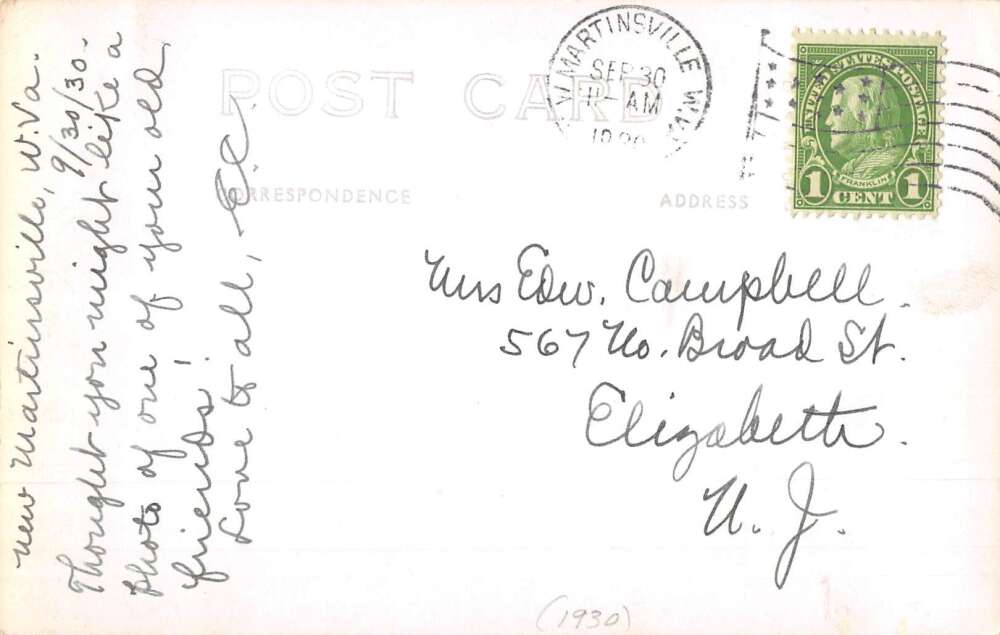 New Martinsville, W.Va.
9/30/30.
Thought you might like a
photo of one of your old
friends!
Love to all,
POST CARD
CORRESPONDENCE
ADDRESS
MARTINSVILLE W.VA.
SEP 30
11-AM
UNITED STATES POSTAGE
FRANKLIN
1 CENT 1
Mrs Edw. Campbell.
567 No. Broad St.
Elizabeth.
N. J.
(1930)